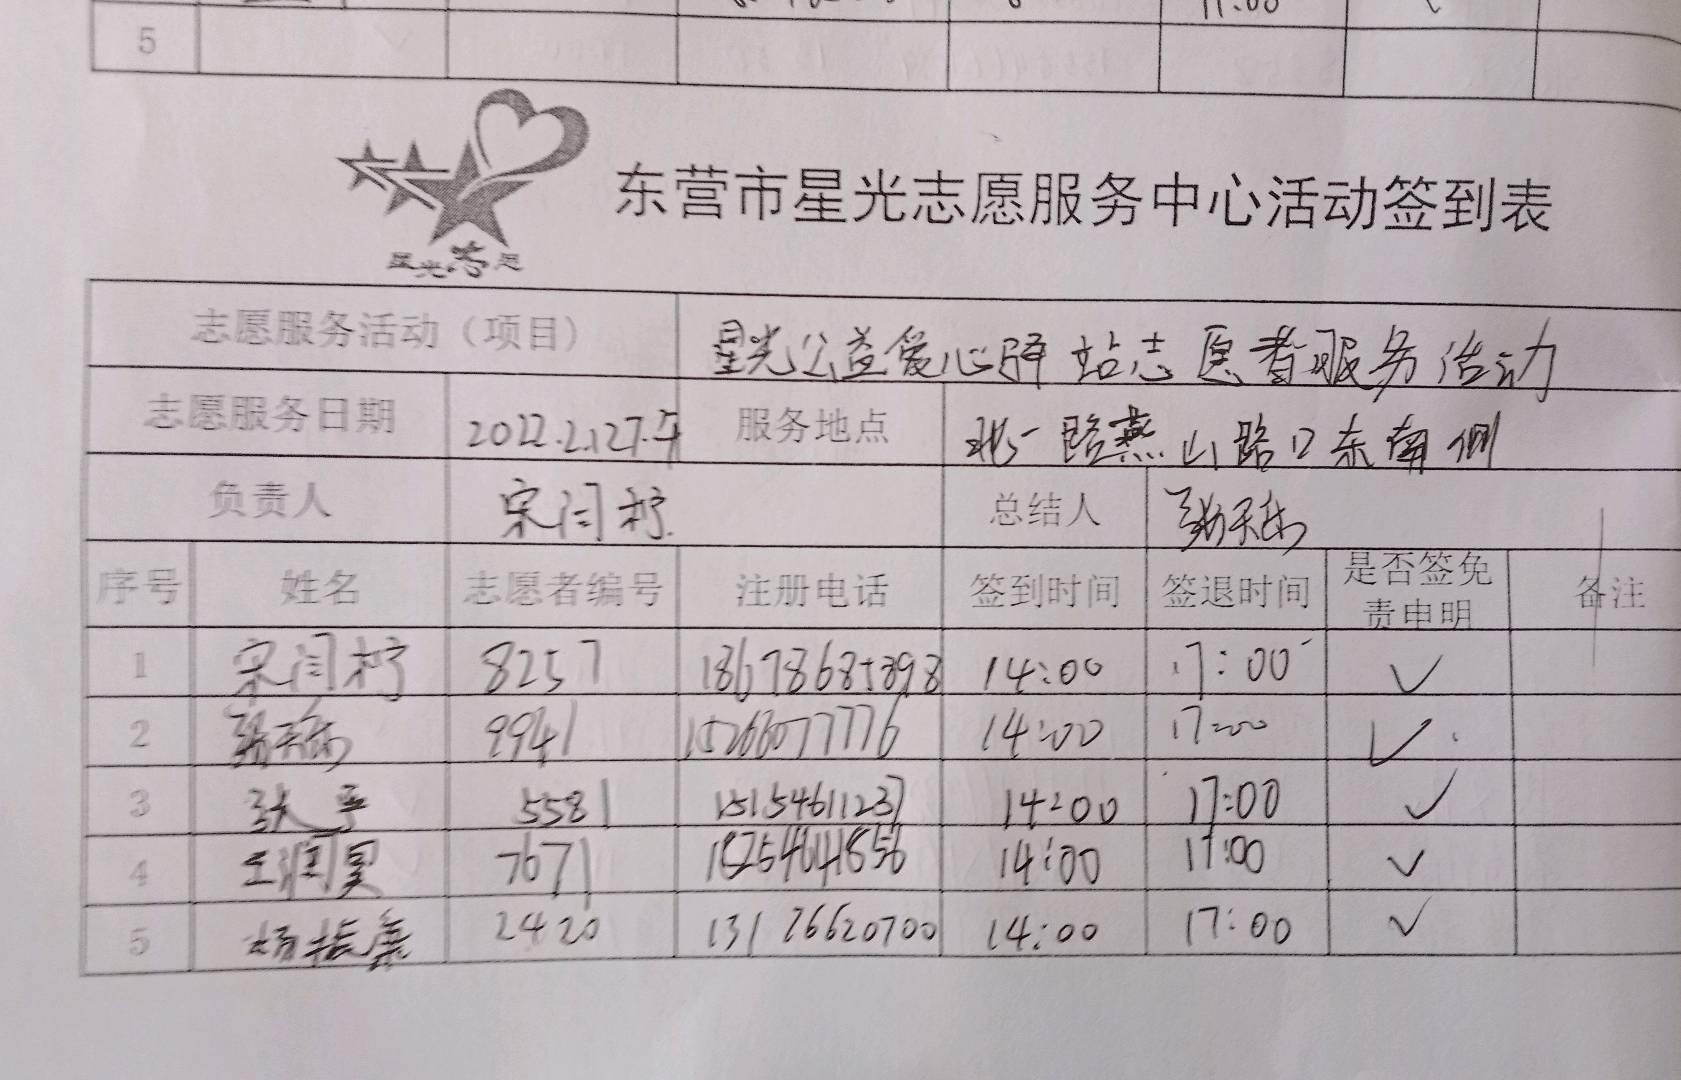 11:00
5
东营市星光志愿服务中心活动签到表
星光志愿
志愿服务活动（项目） 星光公益爱心驿站志愿者服务活动
志愿服务日期 2022.2.27.下 服务地点 北一路燕山路口东南侧
负责人 宋闫柠 总结人
序号 姓名 志愿者编号 注册电话 签到时间 签退时间 是否签免责申明 备注
1 宋闫柠 8257 18678685898 14:00 17:00 ✓
2 9941 15266077776 14:00 17:00 ✓
3 5581 15154611237 14:00 17:00 ✓
4 王润昊 7671 14:00 17:00 ✓
5 杨振廉 2420 13176620700 14:00 17:00 ✓